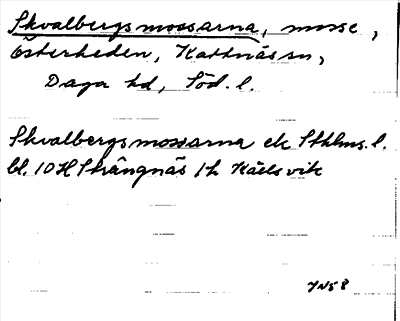 Skvalbergsmossarna, mosse,
Österheden, Kattnäs sn,
Daga hd, Söd. l.
Skvalbergsmossarna ek Sthlms. l.
bl. 10 H Strängnäs 1h